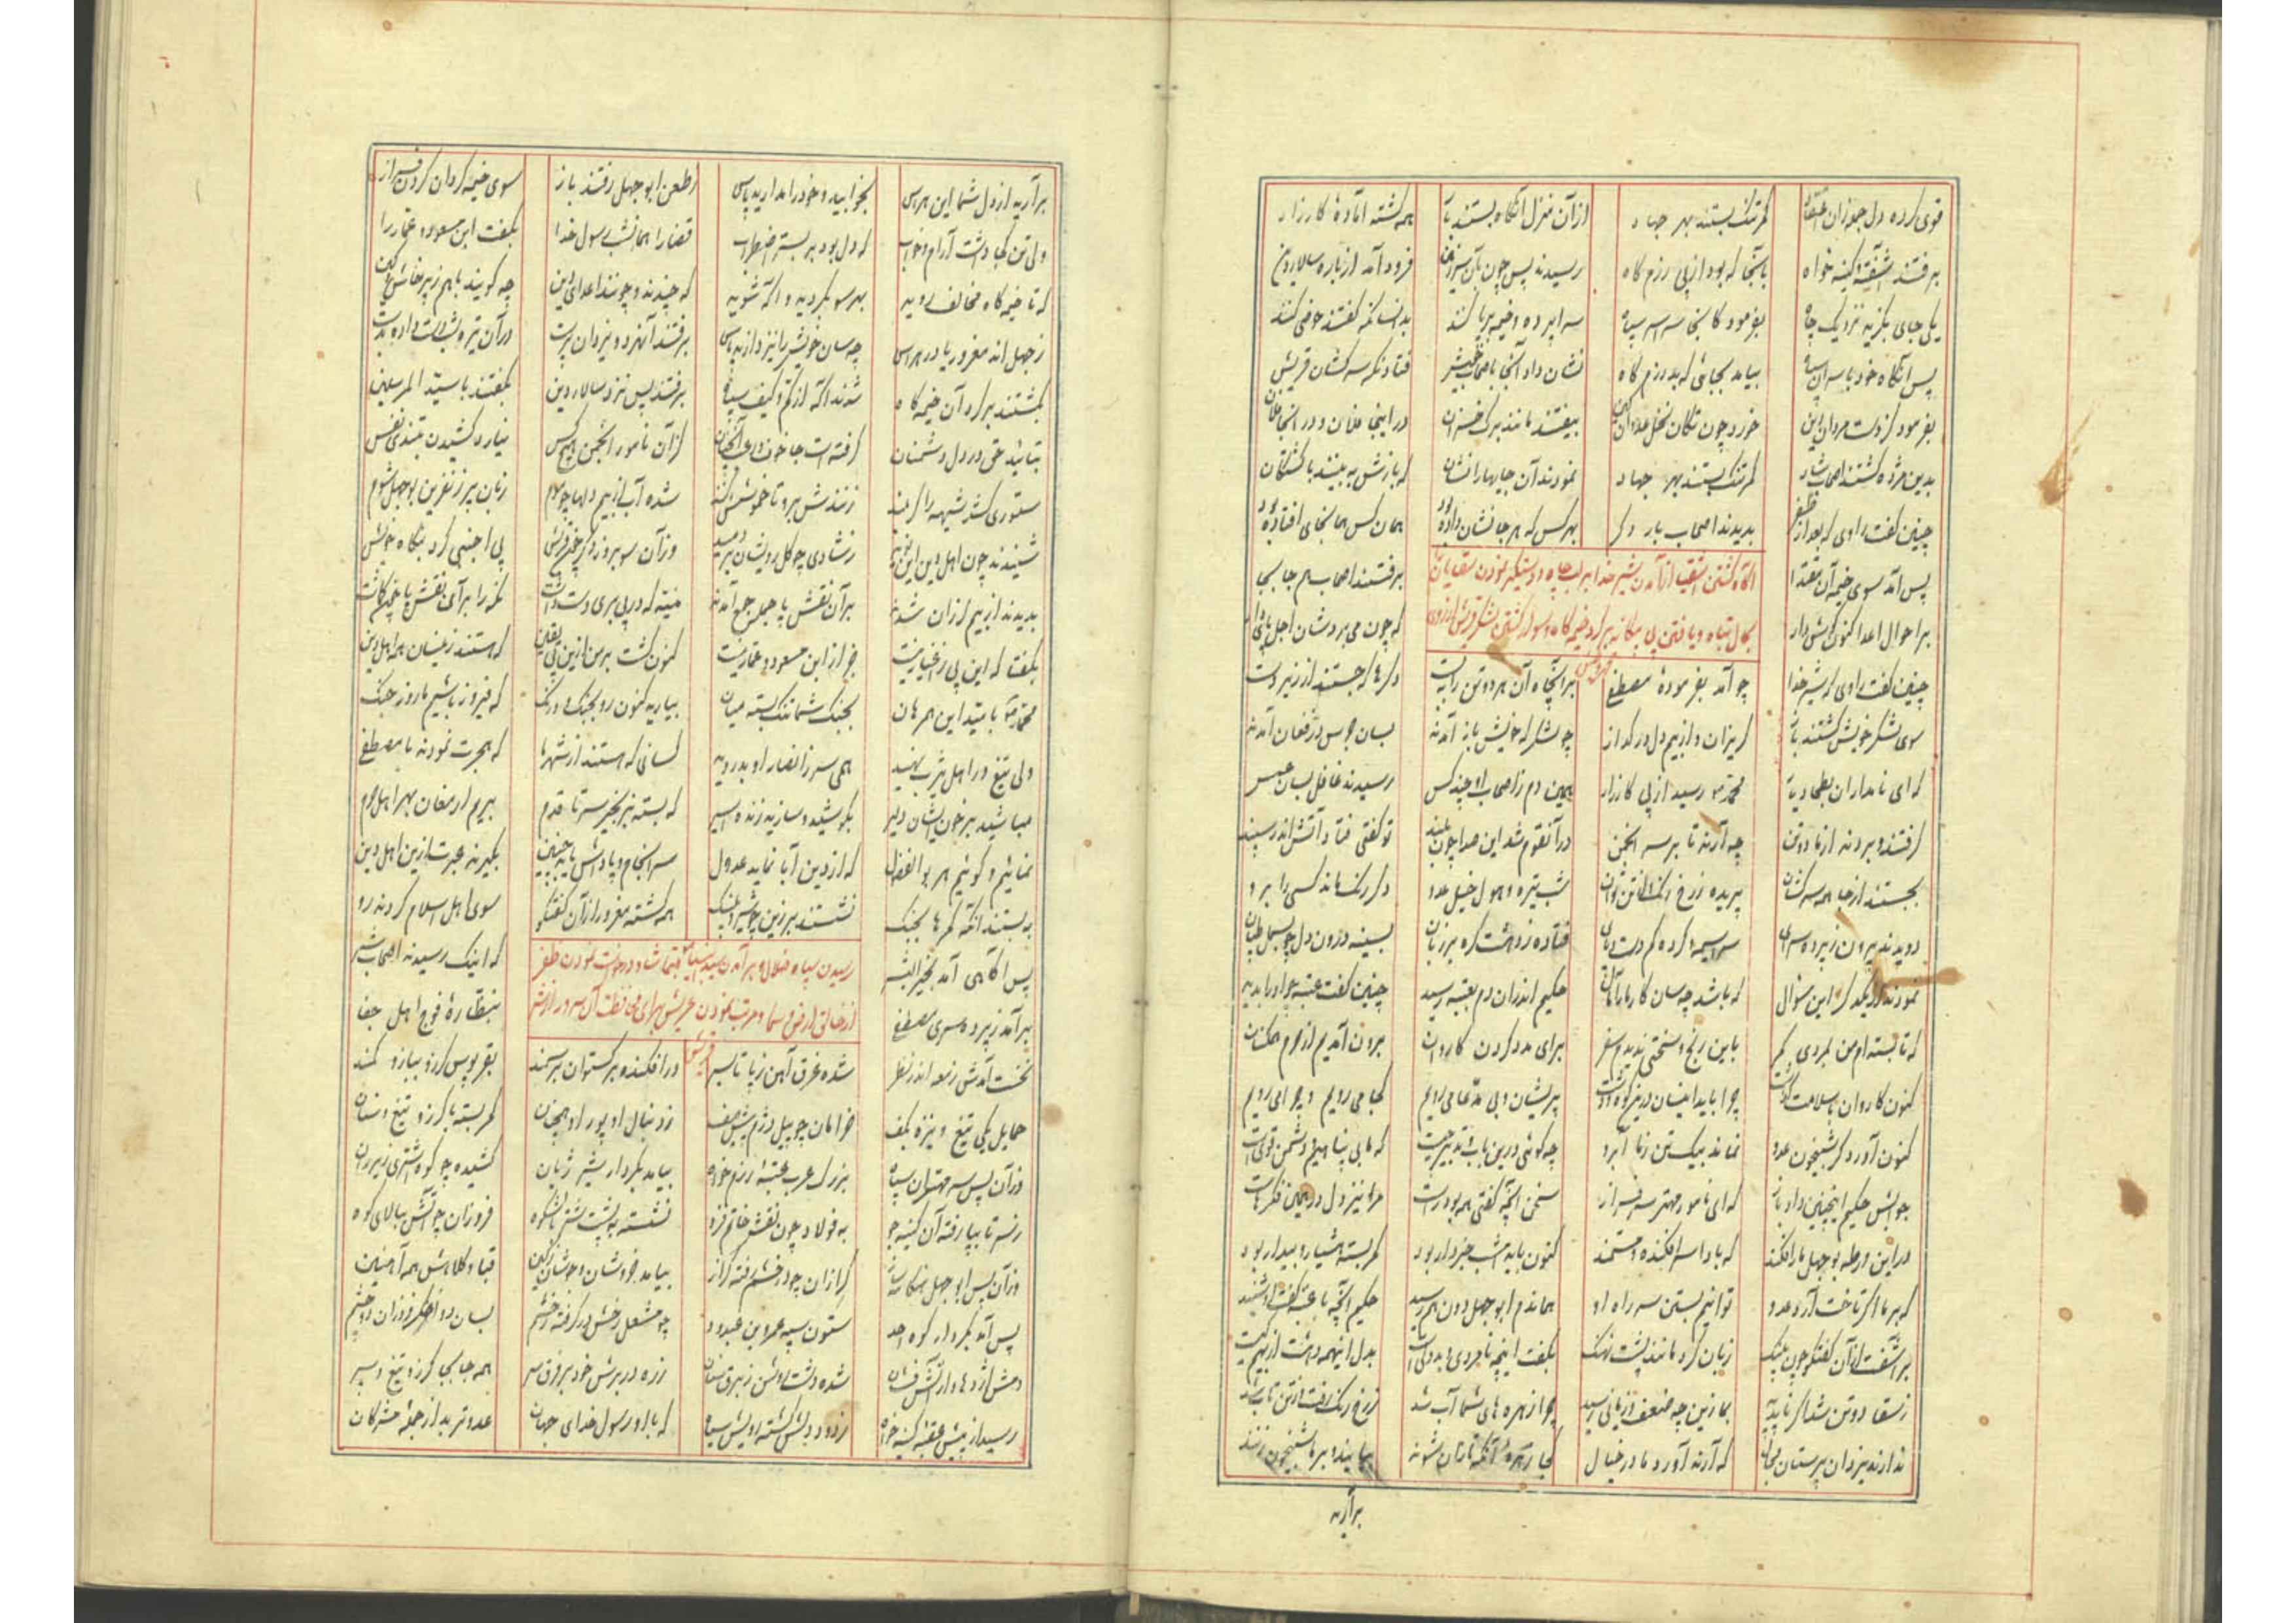 قوی کرده دل جو زان
کمر تنگ بستند بهر جهاد
از آن منزل آنگاه بستند بار
همه گشته آمادهٔ کارزار
برفتند آشفته کینه خواه
بآنجا که بود از پی رزم گاه
رسیدند پس چون بآن سرزمین
فرود آمد از باره سالار دین
یکی جای بگزید نزدیک چاه
بفرمود کانجا سراسر سپاه
سراپرده و خیمه برپا کنند
بدانسان که گفتند
پس آنگاه خود با سران سپاه
بیامد بجائی که بد رزم گاه
نشان داد آنجا باصحاب خویش
فتادنگه سرکشان قریش
بفرمود کز دست مردان دین
خورد چون تکان نخل
بیفتند مانند برگ خزان
در اینجا فلان و در آنجا فلان
بدین مژده گشتند اصحاب شاد
کمر تنگ بستند بهر جهاد
نمودند آن جایها را نشان
که بازش به بینند با کشتگان
چنین گفت راوی که بعد از ظفر
بدیدند اصحاب بار دگر
بهر کس که هر جا نشان داده بود
همان کس همانجای افتاده بود
آگاه گشتن اشقیا از آمدن شیر خدا بر لب چاه و دستگیر نمودن سقایان
بحال تباه و یافتن پی بیگانه بر گرد خیمه گاه
پس آمد سوی خیمه آن مقتدا
برفتند اصحاب هم جا بجا
بر احوال اعدا کنون گوش دار
که چون می بردشان اجل پای دار
چنین گفت راوی که شیر خدا
چو آمد بفرمودهٔ مصطفی
بر آنچاه آن هر دو تن را ببست
دگرها که جستند از زیر دست
سوی لشکر خویش گشتند باز
گریزان و از بیم دل در گداز
چو لشکر که خویش باز آمدند
بسان جرس در فغان آمدند
که ای نامداران بطحا دیار
محمد رسید از پی کارزار
همین دم ز اصحاب او چند کس
رسیدند غافل بسان عسس
گرفتند و بردند از ما دو تن
چه آرند تا بر سر انجمن
در آن قوم شد این صدا چون بلند
تو گفتی فتاد آتش اندر سپند
بجستند از جا همه سرکشان
پریده ز رخ رنگ
شب تیره و هول خیل عدو
دگر رنگ نماند کسی را برو
دویدند بیرون ز پرده سرای
سراسیمه گم کرده دست و پای
فتاده ز دهشت گره بر زبان
بسینه درون دل چو بسمل طپان
نمودند از یکدگر این سؤال
که باشد چسان کار ما را مآل
حکیم اندران دم بعتبه رسید
چنین گفت عتبه چو او را بدید
که تا بسته ام من بمردی کمر
باین رنج و سختی ندیدم سفر
برای مدد کردن کاروان
برون آمدیم از حرم
کنون کاروان با سلامت گذشت
چرا باید اینسان درین کوه و دشت
پریشان و بی مدعا می رویم
کجا می رویم و چرا می رویم
کنون آورد گر شبیخون عدو
نماند بیک تن ز ما آبرو
چه گوئی درین باب تدبیر چیست
که ما بی پناهیم و دشمن قویست
جوابش حکیم اینچنین داد باز
که ای نامور مهتر سرفراز
سخن آنچه گفتی همه بود راست
مرا نیز دل در همین فکرهاست
در این ورطه بوجهل ما را فکند
که بادا سرافکنده و مستمند
کنون باید امشب خبردار بود
کمر بسته هشیار و بیدار بود
که بر ما اگر تاخت آرد عدو
توانیم بستن سر راه او
همان دم ابو جهل دون هم رسید
حکیم آنچه با عتبه گفت او شنید
بر آشفت از آن گفتگو چون پلنگ
زبان کرد مانند پشت نهنگ
بگفت اینچه نامردی و بددلیست
بدل اینهمه دهشت از بیم کیست
ز سقا دو تن شد اگر ناپدید
بما زین چه ضعف و زیانی رسید
چرا زهره های شما آب شد
ز رخ رنگ رفت از تن تاب شد
ندارند یزدان پرستان مجال
که آرند آورد ما در خیال
کجا زهرهٔ آنکه تازان شوند
بیایند و بر ما شبیخون زنند
برآرید
برآرید از دل شما این هراس
بخوابید و خود را مدارید پاس
ز طعن ابو جهل رفتند باز
سوی خیمه گردان گردن فراز
ولی تن کجا داشت آرام و خواب
که دل بود بر بستر اضطراب
قضا را همانشب رسول خدا
بگفت ابن مسعود و عمار را
که تا خیمه گاه مخالف روید
بهر سو بگردید و آگه شوید
که چندند و چونند اعدای دین
چه گویند با هم ز پرخاش و کین
ز جهل اند مغرور یا در هراس
چسان خویش را نیز دارند پاس
برفتند آنهر دو یزدان پرست
در آن تیره شب دست داده بدست
بگشتند بر گرد آن خیمه گاه
شدند آگه از کم و کیف سپاه
برفتند پس نزد سالار دین
بگفتند با سید المرسلین
بتائید حق در دل دشمنان
گرفته است جا خوف
کزان نامور انجمن هیچ کس
نیارد کشیدن بتندی نفس
ستوری کشد شیهه را گر بلند
زنندش برو تا خموشش کنند
شده آب از بیم دلها چو موم
زبان پر ز نفرین بوجهل شوم
شنیدند چون اهل دین این نوید
ز شادی چو گل رویشان بردمید
وز آن سو به روز دگر چون قریش
پی اجنبی گرد بنگاه خویش
بدیدند از بیم لرزان شدند
بر آن نقش پا جمله جمع آمدند
منبه که در پی بری دست داشت
نگه را بر آن نقش پا بر گماشت
بگفت که این پی ز اغیار نیست
جز از ابن مسعود و عمار نیست
کنون گشت بر من ازین پی یقین
که هستند نزدیکمان اهل دین
محمد بیامد با این همرهان
بجنگ شما تنگ بسته میان
بیارید کنون رو بجنگ و درنگ
که فیروز باشیم ما روز جنگ
ولی تیغ در اهل یثرب نهید
همی سر ز انصار او بدروید
کسانی که هستند از شهر ما
که هجرت نمودند با مصطفی
مباشید بر خون ایشان دلیر
بکوشید و سازید زنده اسیر
که بسته بزنجیر سر تا قدم
بریم ارمغان بهر اهل حرم
نمائیم و گوئیم هر بوالفضول
که از دین آبا نماید عدول
سرانجام و پاداش یابد چنین
بگیرند عبرت ازین اهل دین
ببستند آنگه کمرها بجنگ
نشستند بر زین چو شیر و پلنگ
همه گشته مغرور از آن گفتگو
سوی اهل اسلام کردند رو
رسیدن سپاه ضلال و برآمدن سید انبیا بتماشا و درخواست نمودن ظفر
از خالق ارض و سما و مرتب نمودن عریش برای محافظت آن سرور از شر قریش
پس آگاهی آمد بخیر البشر
که اینک رسیدند اصحاب شر
برآمد ز پرده سرای مصطفی
بنظارهٔ فوج اهل جفا
نخست آمدش زمعه اندر نظر
شده غرق آهن ز پا تا بسر
در افکنده برگستوان بر سمند
بقربوس گرز و ببازو کمند
حمایل یکی تیغ و نیزه بکف
خرامان چو پیل دژم پیش صف
ز دنبال او پور او همچنان
کمر بسته با گرز و تیغ و سنان
وز آن پس سر مهتران سپاه
بزرگ عرب عتبه رزم خواه
بیامد بکردار شیر ژیان
کشیده چو کوه اشتری زیر ران
ز سر تا بپا رفته آن کینه جو
به فولاد چون نقش خاتم فرو
نشسته به پشت شتر با شکوه
فروزان چو آتش ببالای کوه
وز آن پس ابو جهل هنگامه ساز
گرازان چو در خشم رفته گراز
بیامد خروشان و جوشان ز کین
قبا و کلاهش همه آهنین
پس آمد بکردار کوه احد
ستون سپه عمرو بن عبدود
چو مشعل رخش در گرفته ز خشم
بسان دو اخگر فروزان دو چشم
دمش اژدها وار آتش فشان
شده دشت روشن ز برق سنان
زره در برش خود بر فرق سر
همه جا بجا گرز و تیغ و سپر
رسید از پیش عقبه کینه خواه
ز دود دلش گشته رویش سیاه
که با او رسول خدای جهان
عدوتر بد از جملهٔ مشرکان